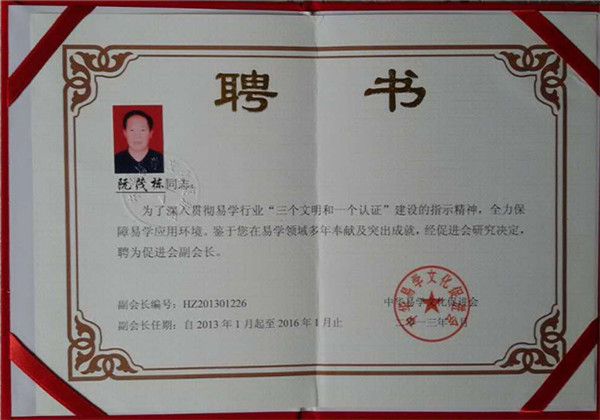 聘 书
阮茂栋同志:
为了深入贯彻易学行业“三个文明和一个认证”建设的指示精神,全力保
障易学应用环境。鉴于您在易学领域多年奉献及突出成就,经促进会研究决定,
聘为促进会副会长。
副会长编号:HZ201301226
中华易学文化促进会
副会长任期:自 2013 年 1 月起至 2016 年 1 月止
二〇一三年一月
中华易学文化促进会